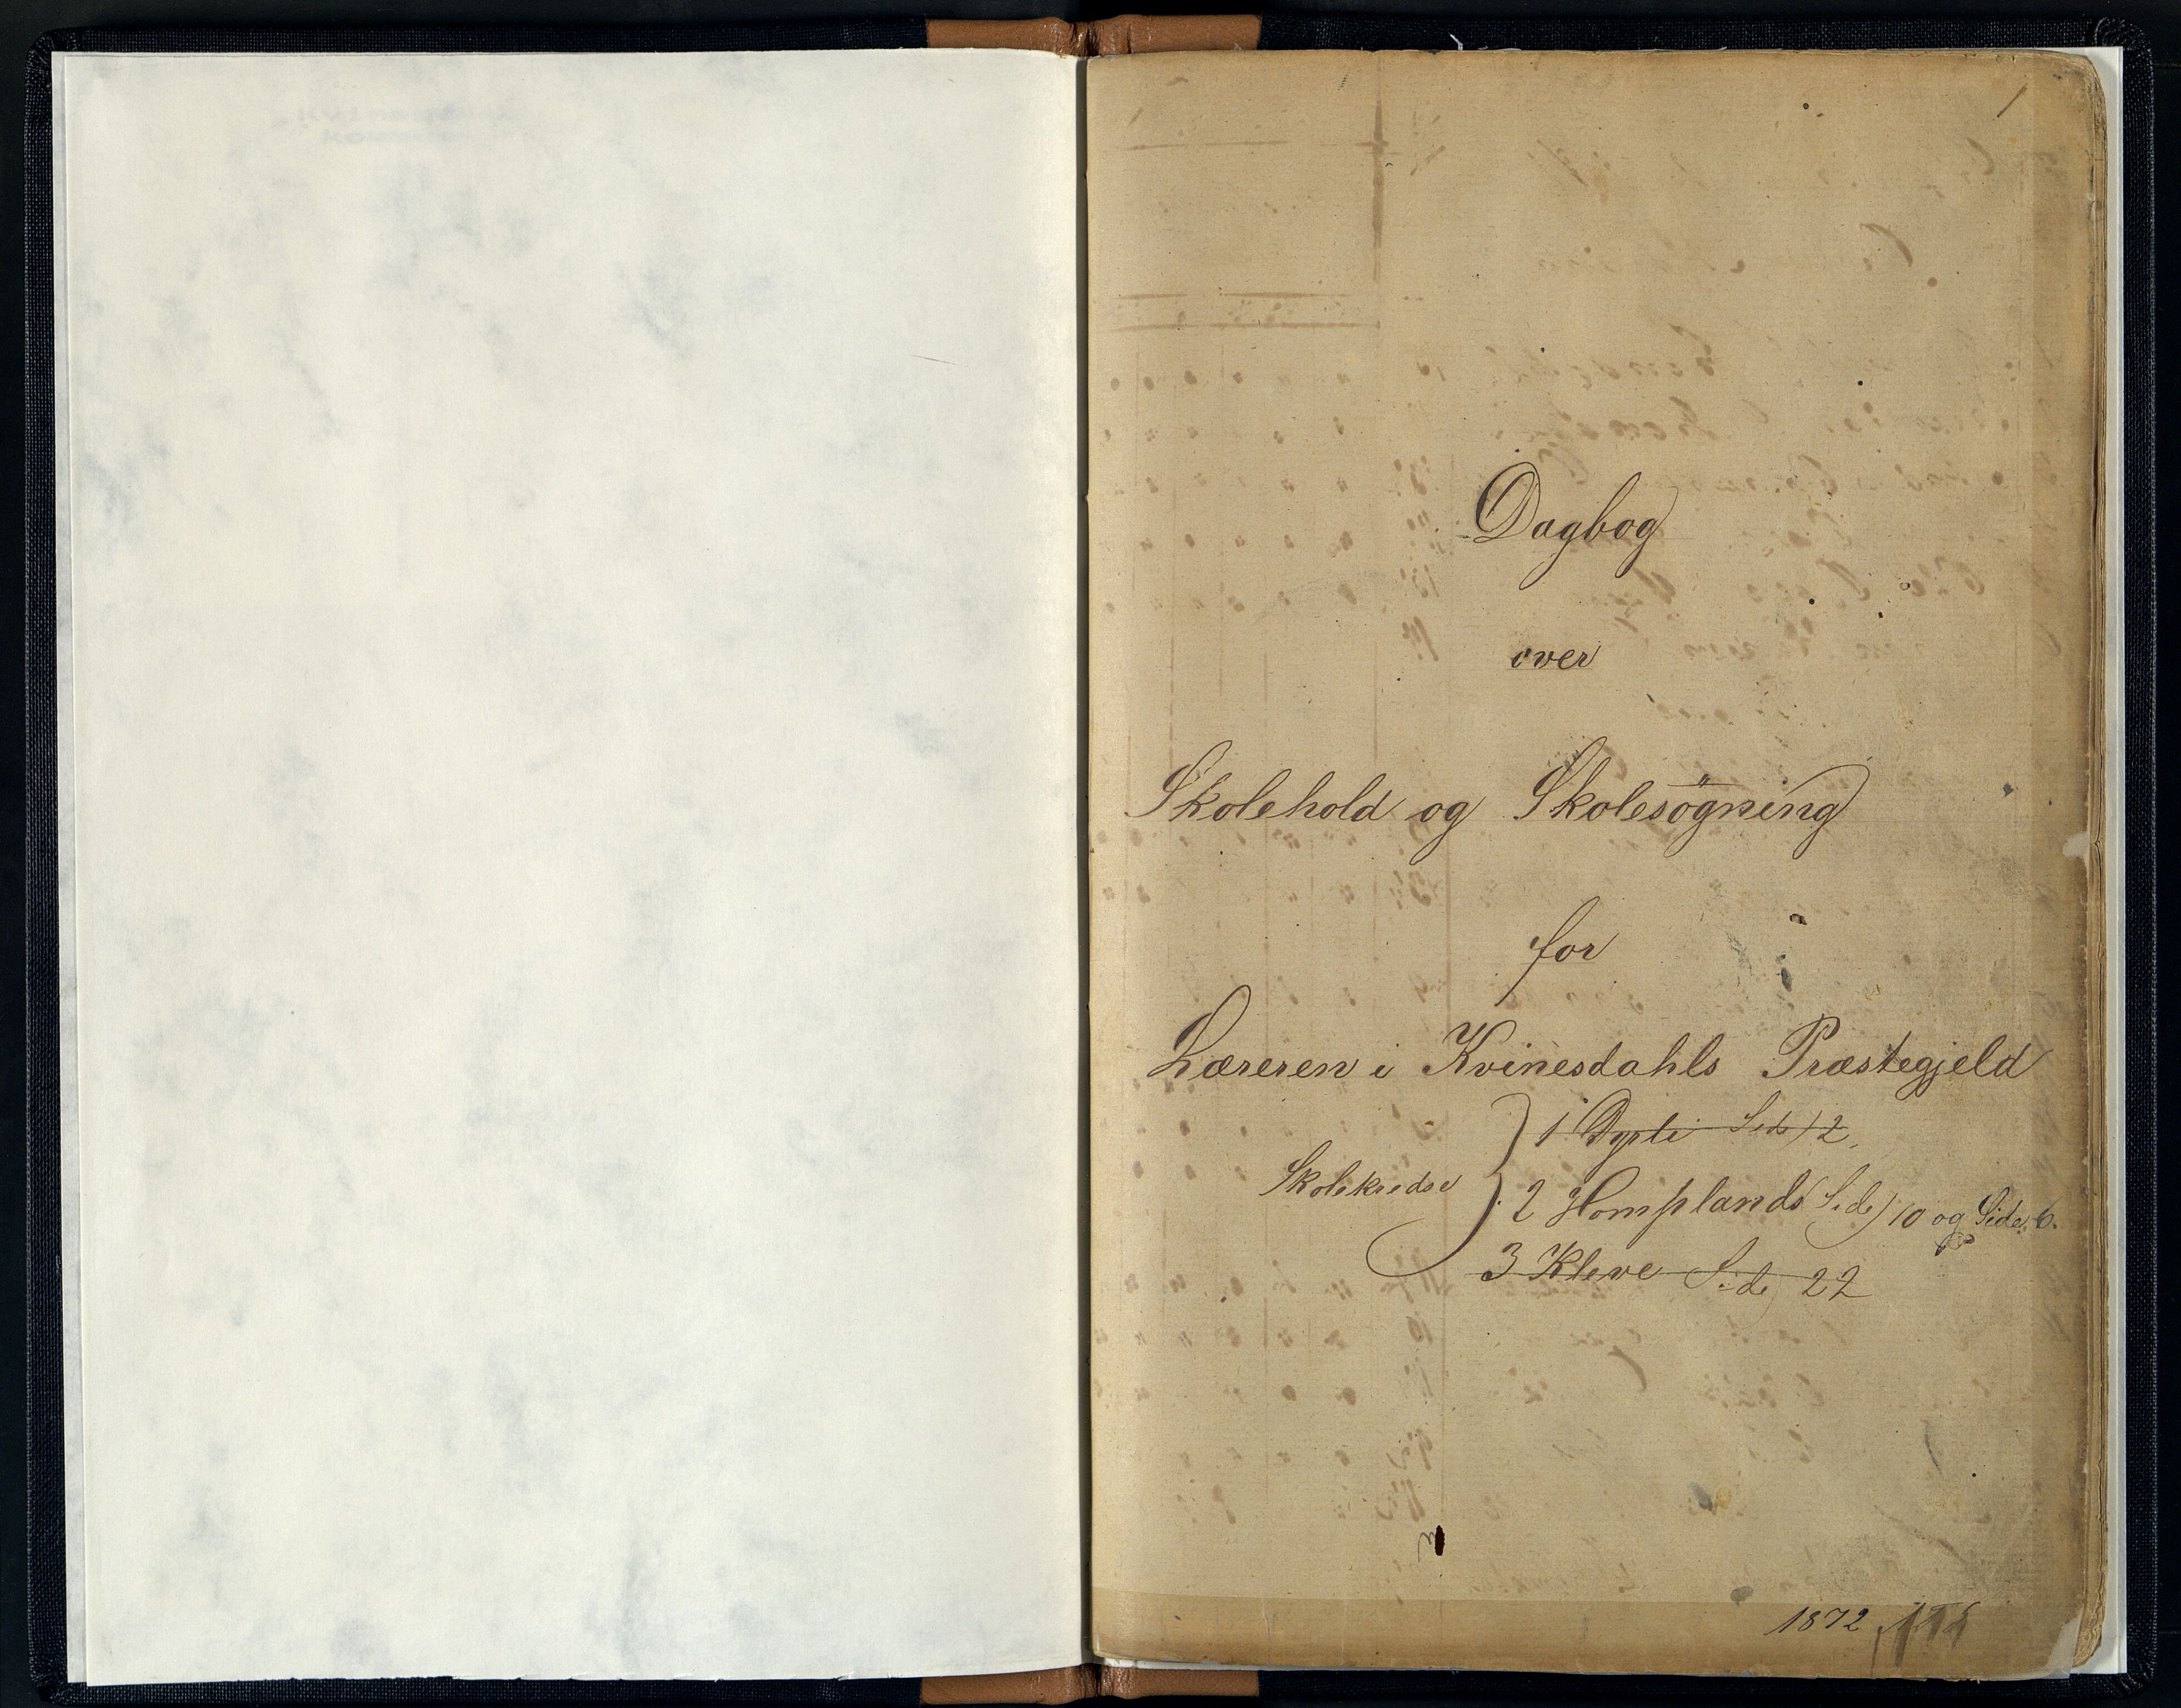 1
Dagbog
over
Skolehold og Skolesögning
for
Læreren i Kvinesdahls Præstegjeld
Skolekredse
1 Dyrli Side 2,
2 Homplands Side 10 og Side 6.
3 Kleve Side 22
1872